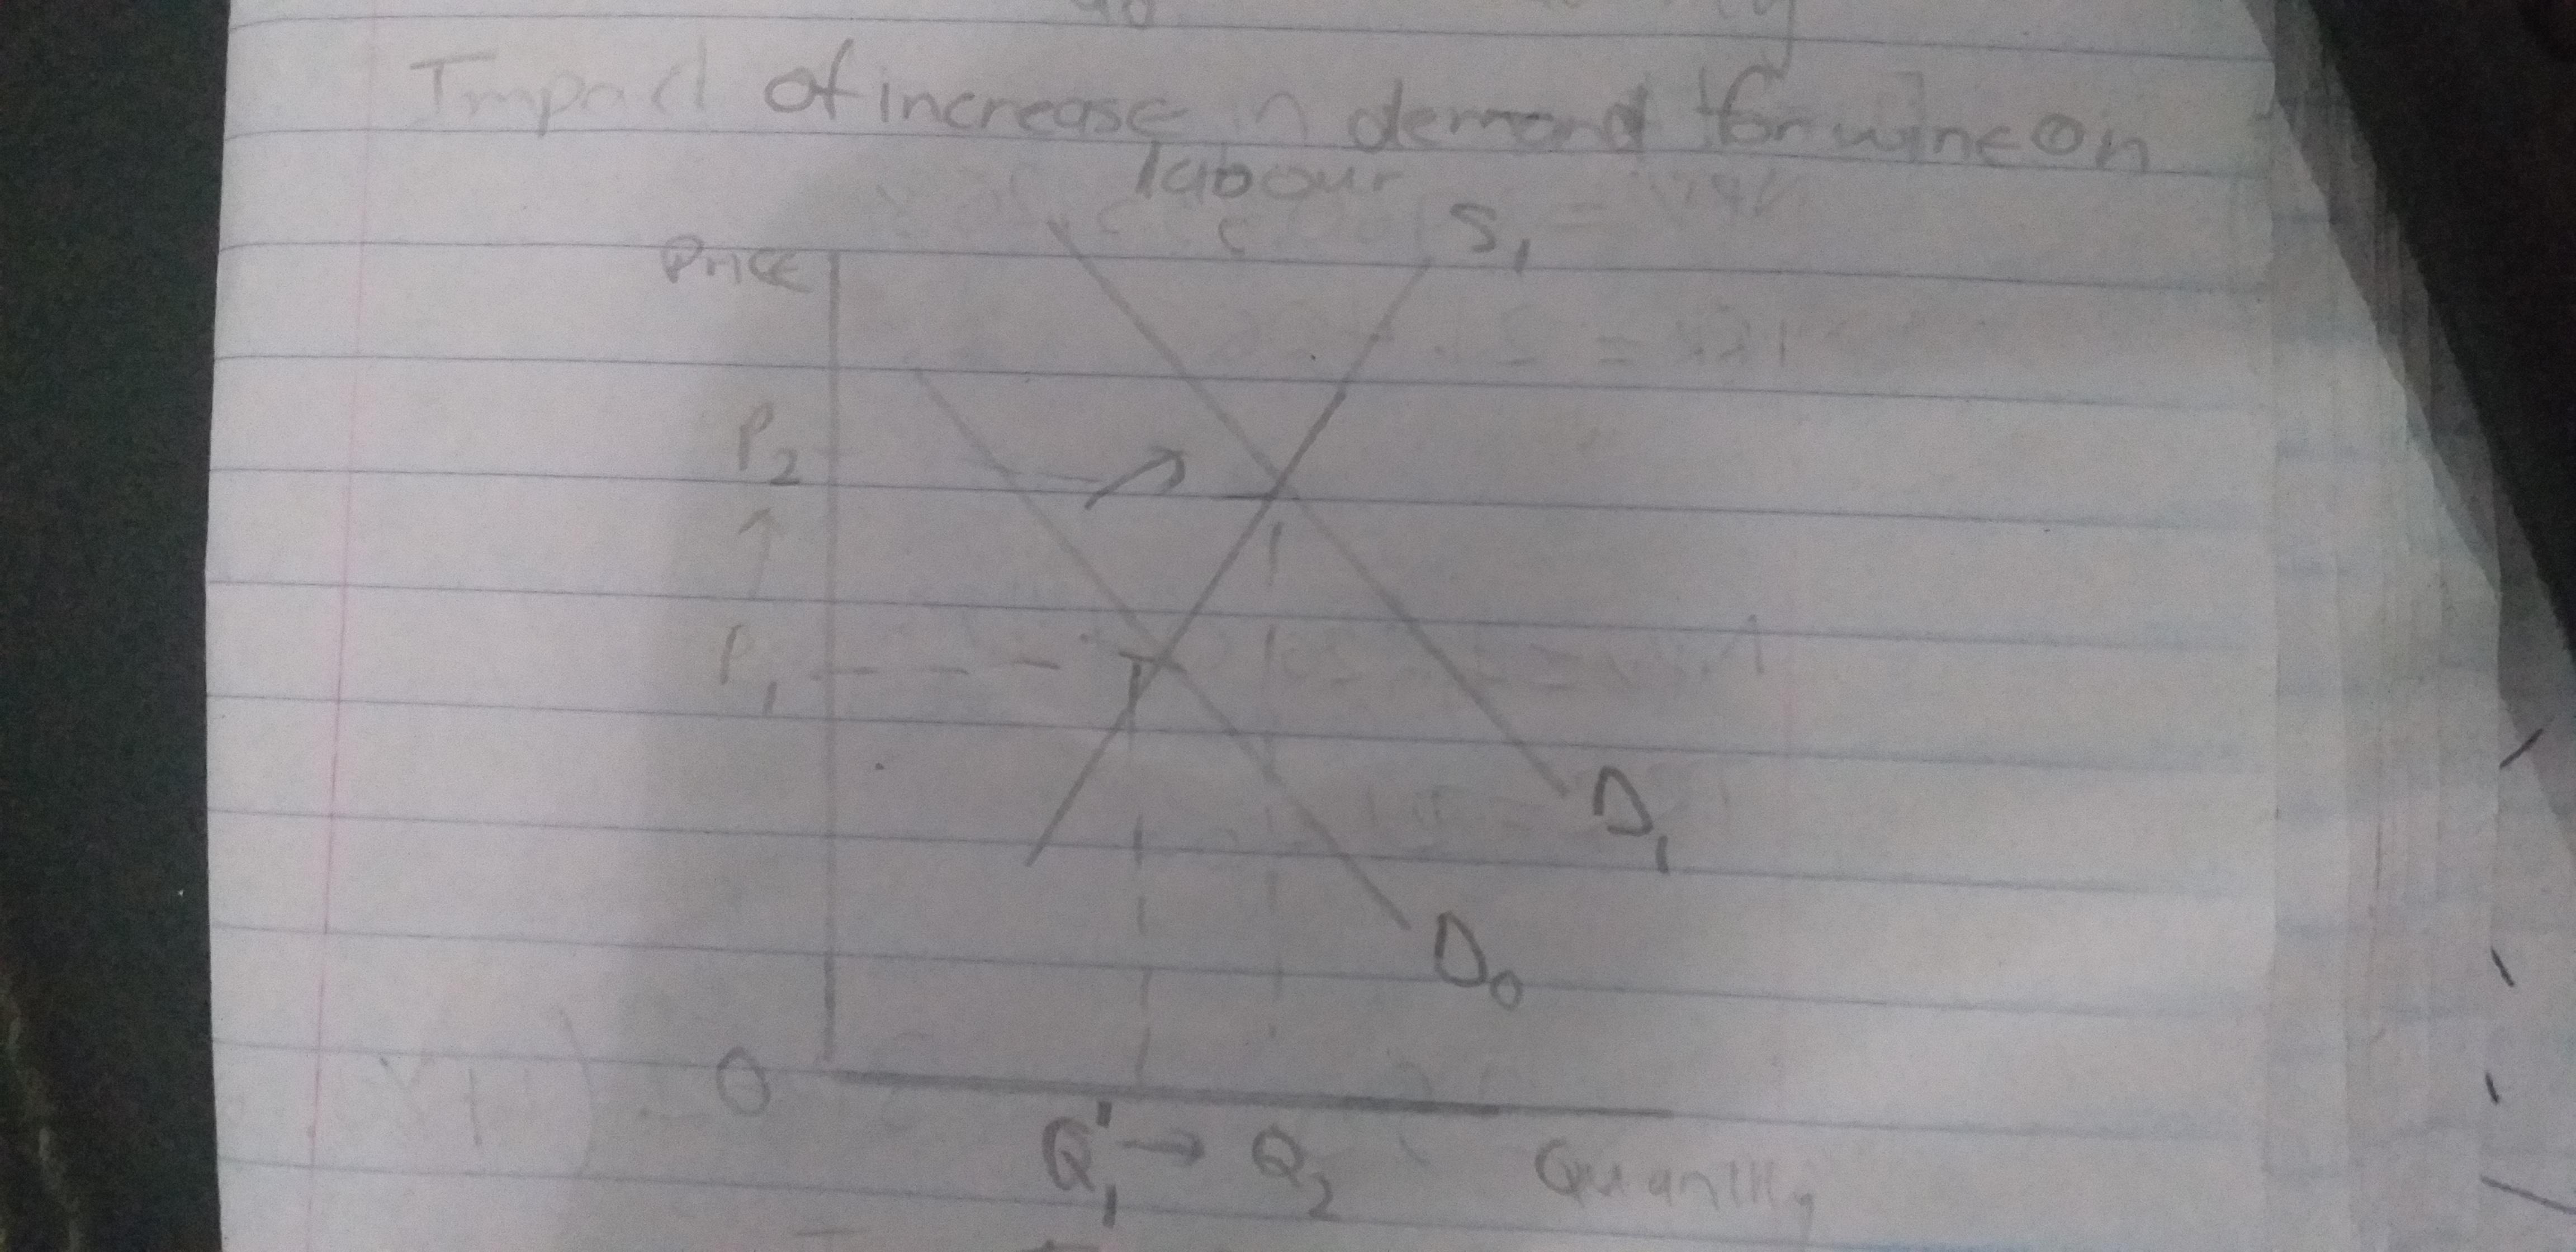 Impact of increase in demand for wine on
labour
S1
Price
P2
P1
D1
D0
O
Q1 → Q2
Quantity